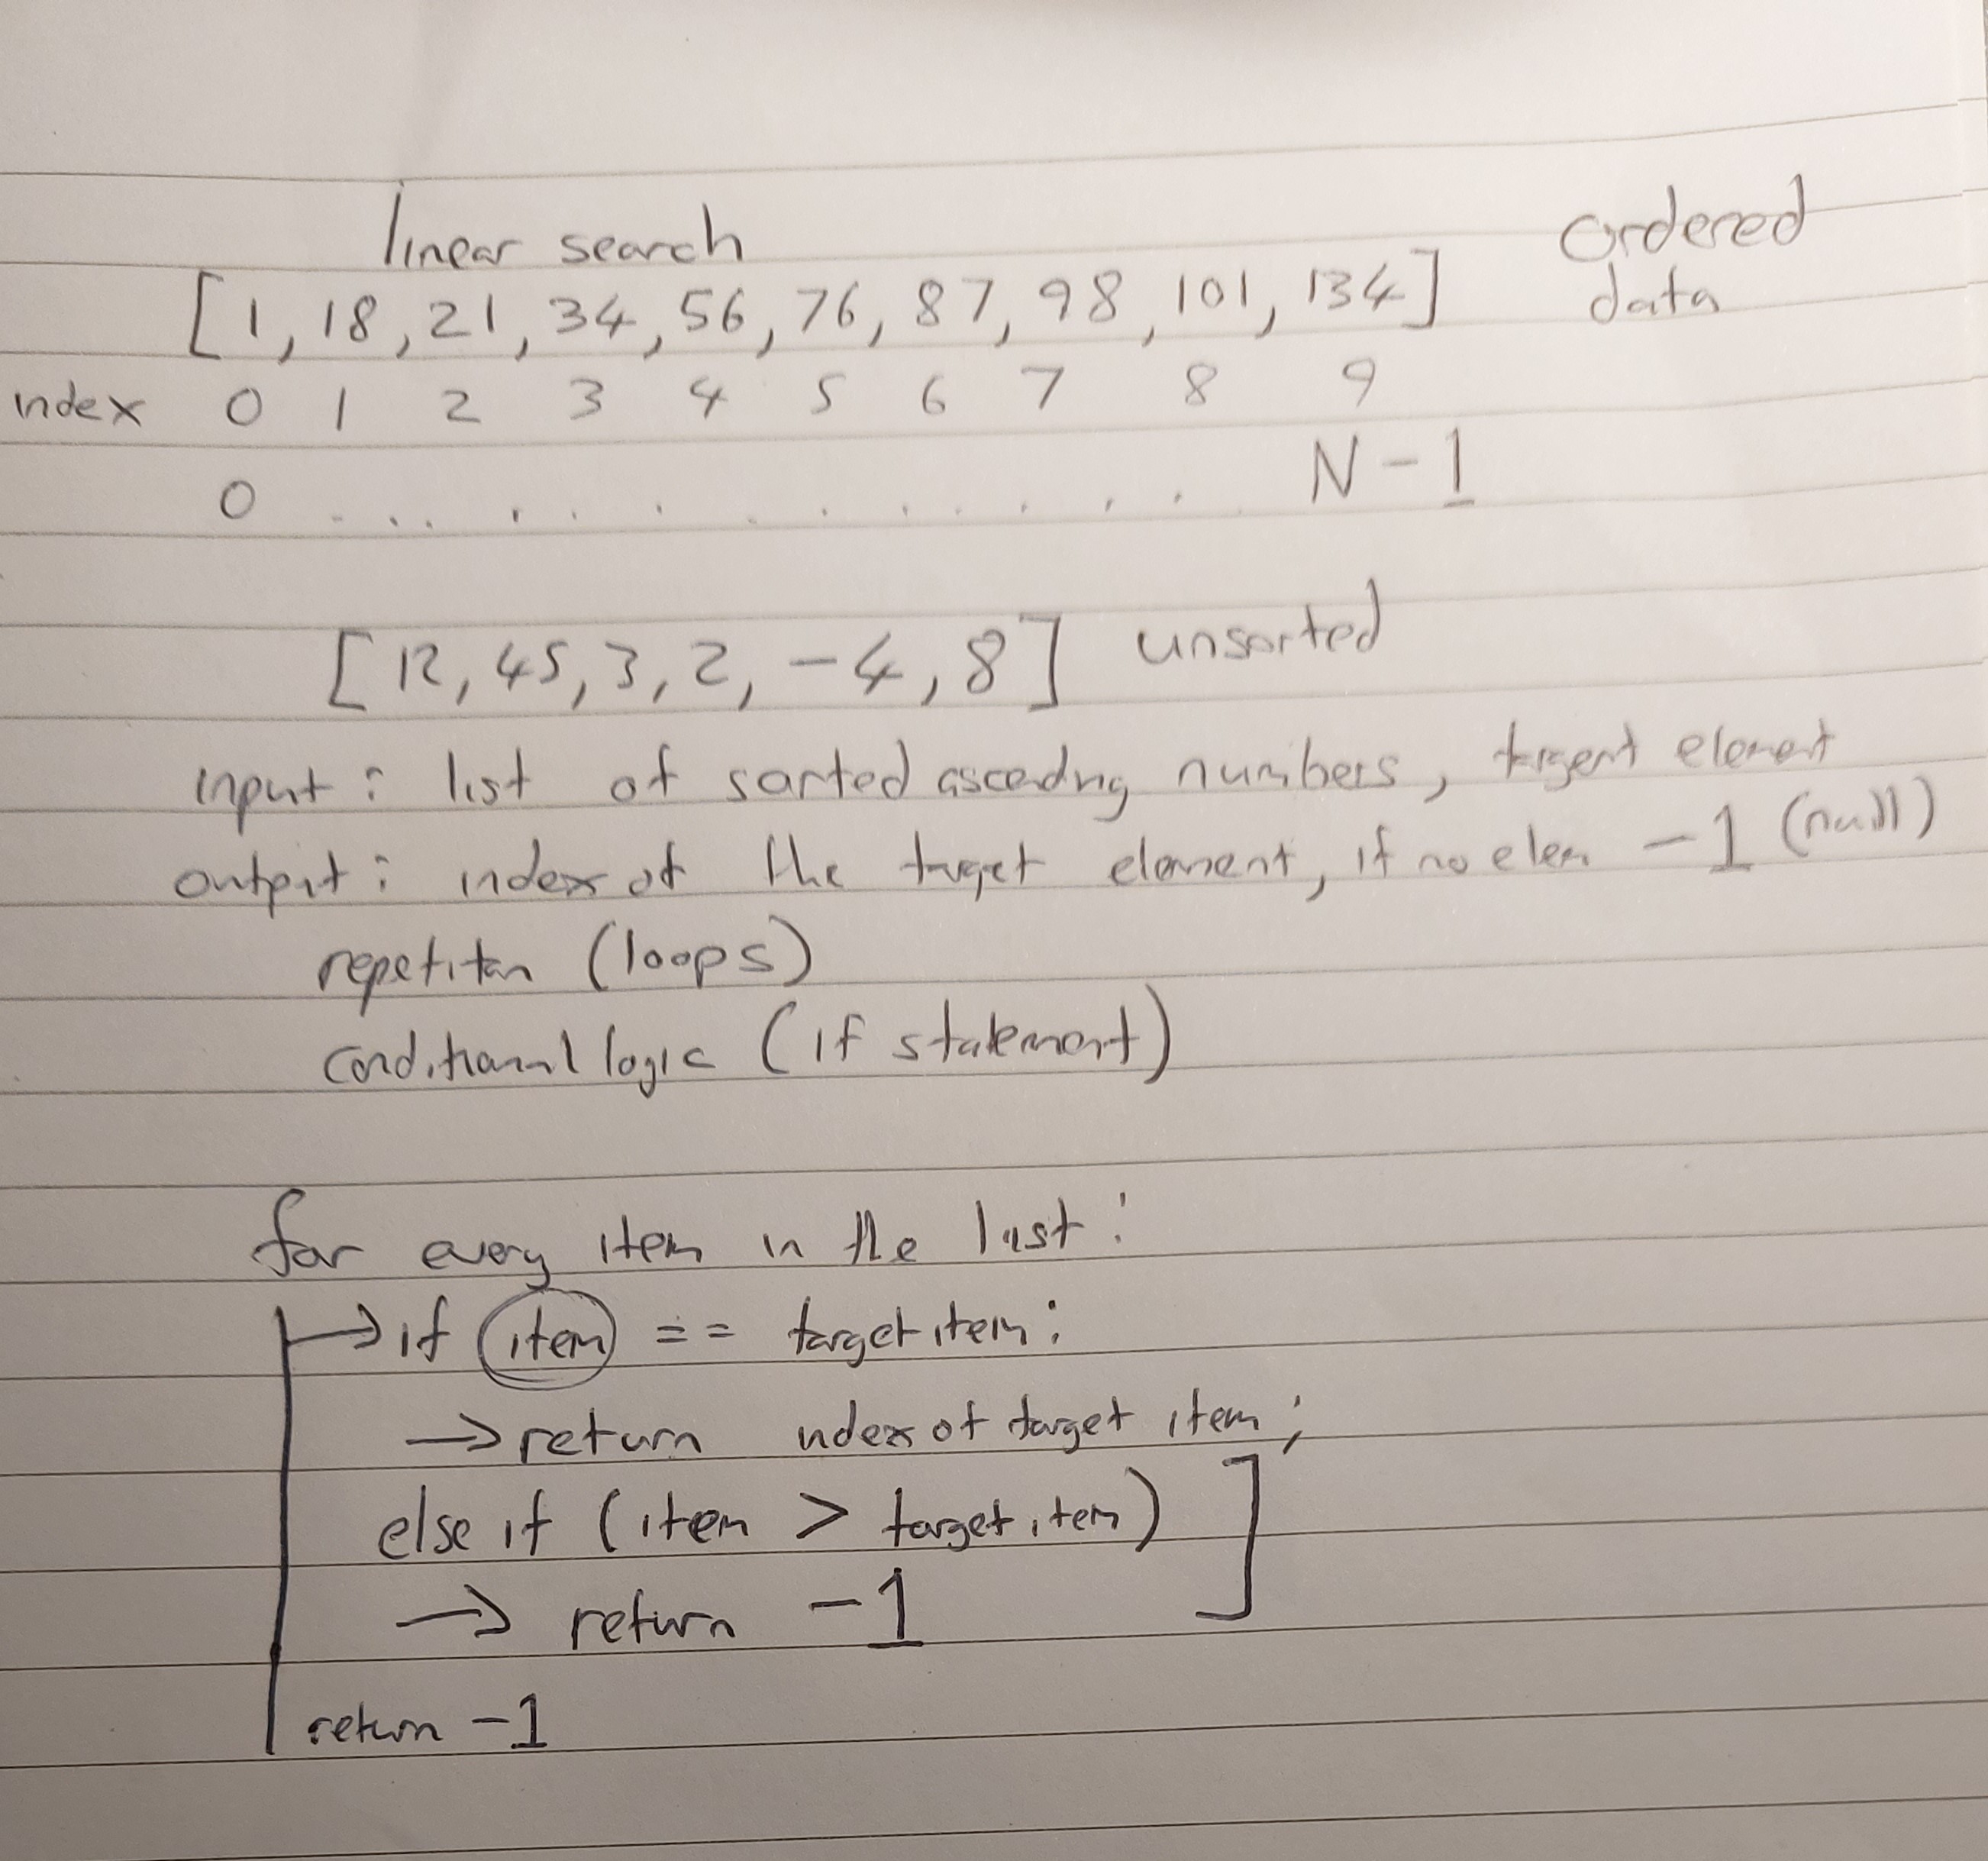 linear search
ordered
[1, 18, 21, 34, 56, 76, 87, 98, 101, 134]
data
index 0 1 2 3 4 5 6 7 8 9
0 . . . . . . . . . . . . . N - 1
[12, 45, 3, 2, -4, 8] unsorted
input : list of sorted ascending numbers, element
output : index of the target element, if no elem -1 (null)
repetition (loops)
conditional logic (if statement)
for every item in the list :
→ if item == target item :
→ return index of target item ;
else if (item > target item) ]
→ return -1
return -1